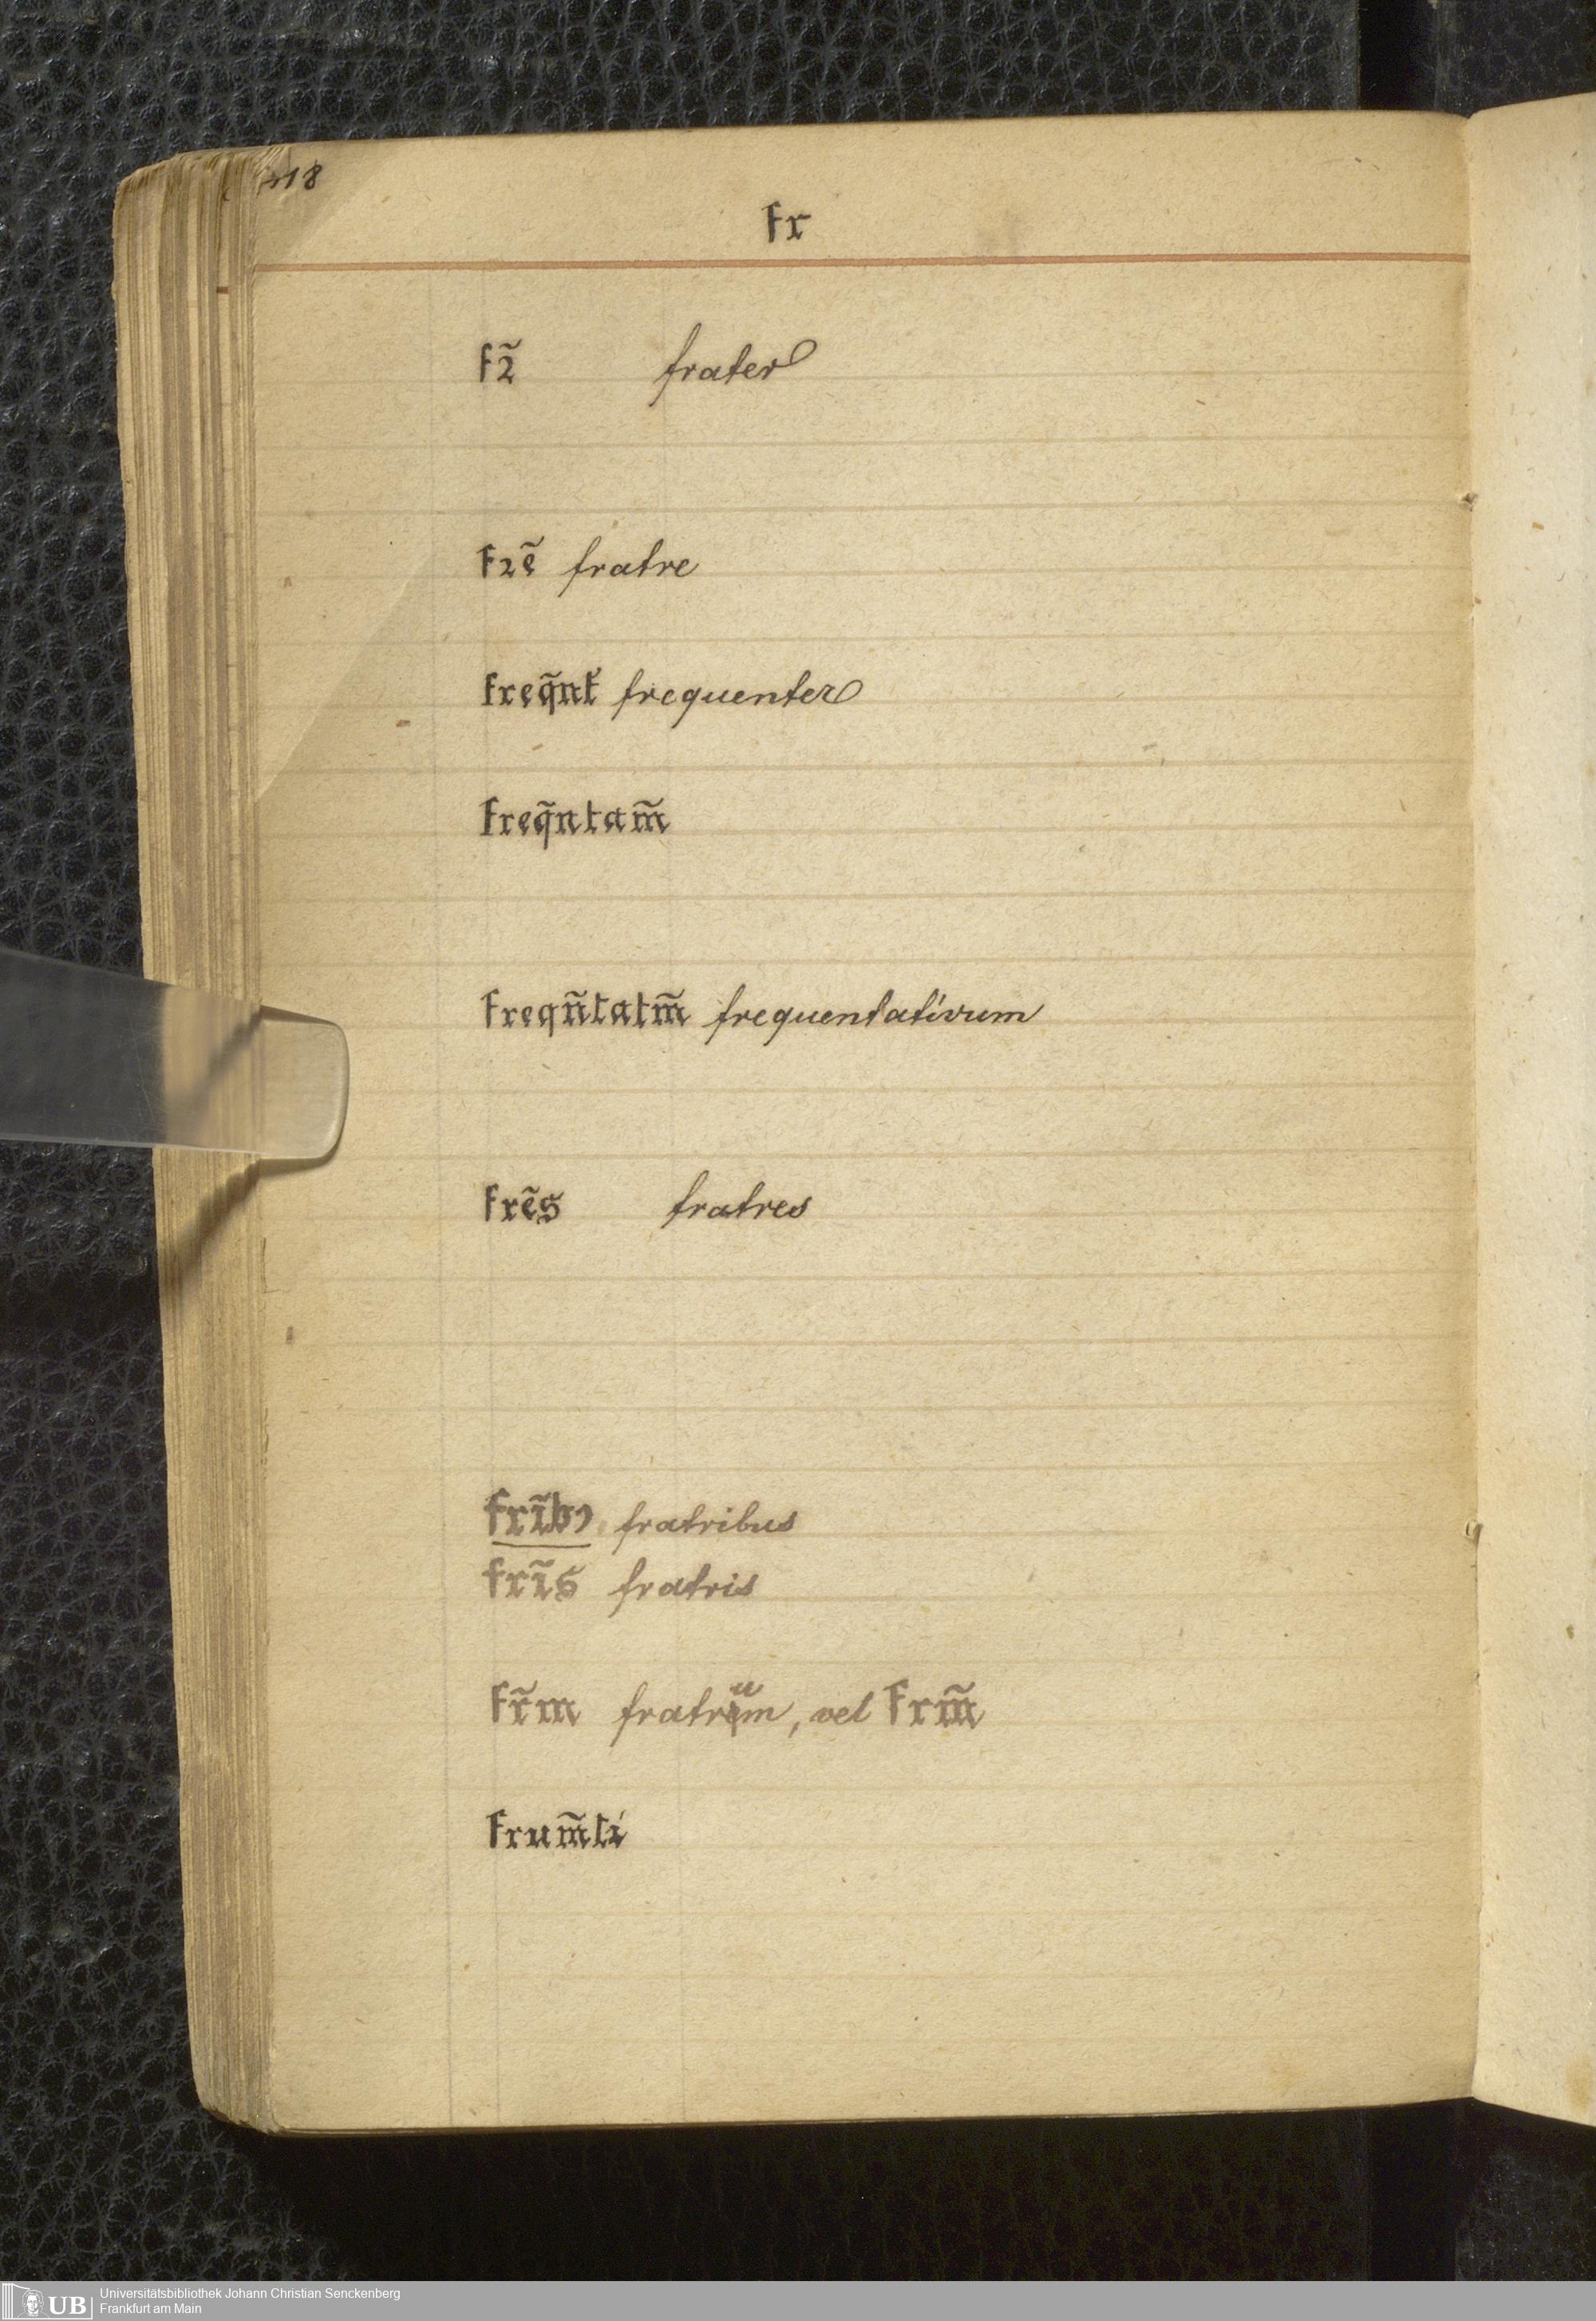 18
fr
fꝛ̃ frater
fꝛẽ fratre
freq̃nt̃ frequenter
freq̃ntam̃
freqñtatm̃ frequentativum
frẽs fratres
frĩbꝰ fratribus
frĩs fratris
fr̃m fratrum, vel frm̃
frum̃ti
UB
Universitätsbibliothek Johann Christian Senckenberg
Frankfurt am Main